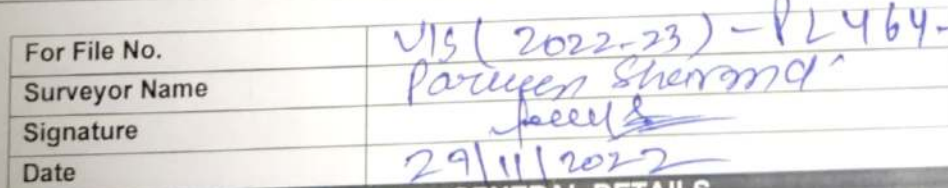 For File No. VIS (2022-23) - PL464-
Surveyor Name Parveen Sharma
Signature
Date 29/11/2022
GENERAL DETAILS